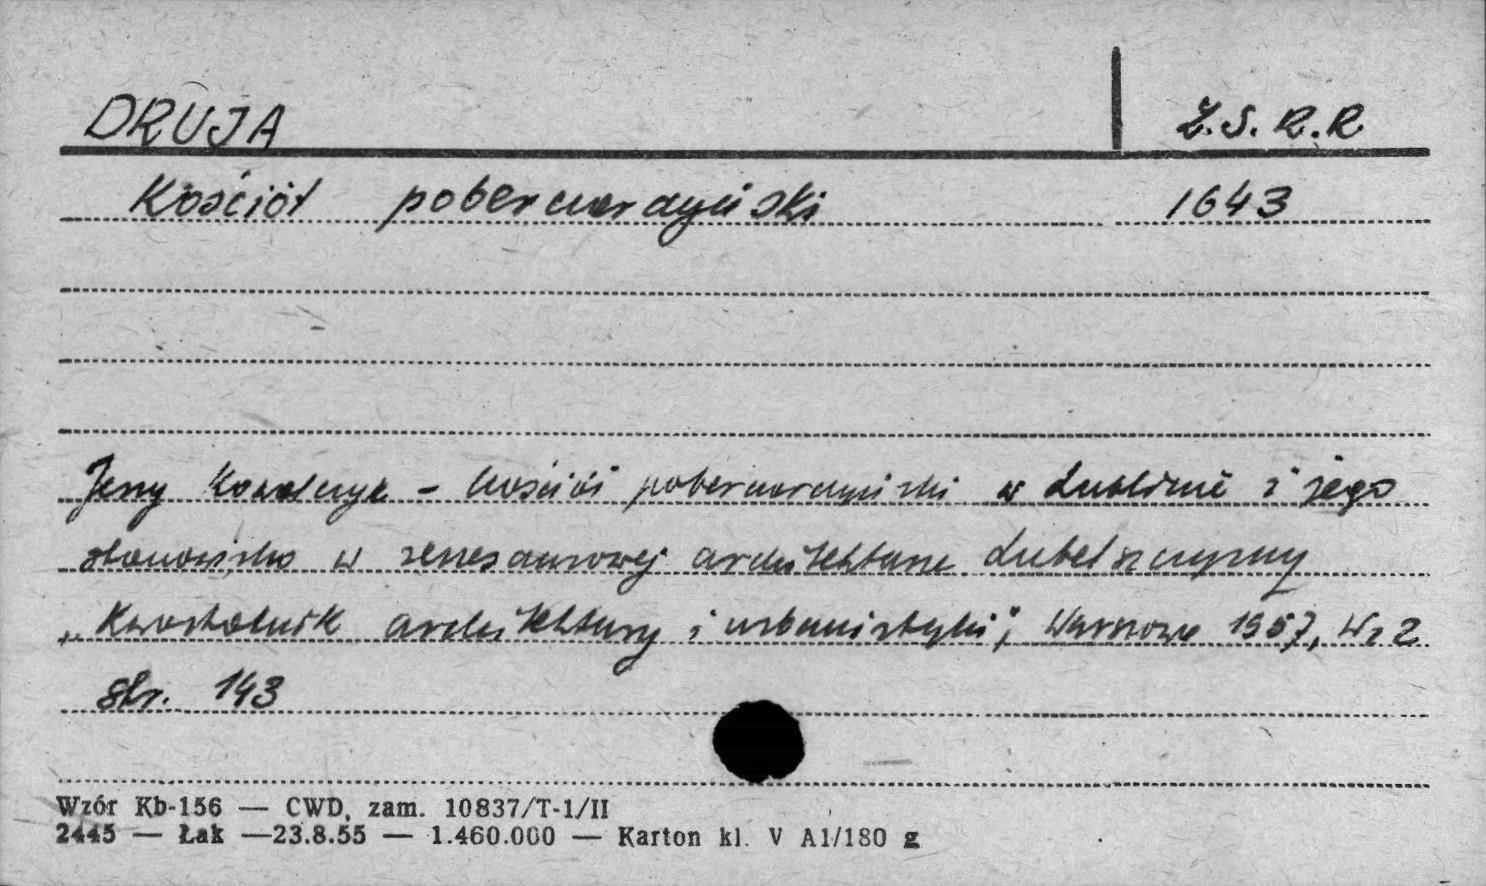 DRUJA
Z.S.R.R
Kościół pobernardyński
1643
Jerzy Kowalczyk - Kościół pobernardyński w Lublinie i jego
stanowisko w renesansowej architekturze Lubelszczyzny
„Kwartalnik architektury i urbanistyki", Warszawa 1957, Nr 2
str. 143
Wzór Kb-156 — CWD, zam. 10837/T-1/II
2445 — Łak —23.8.55 — 1.460.000 — Karton kl. V A1/180 g